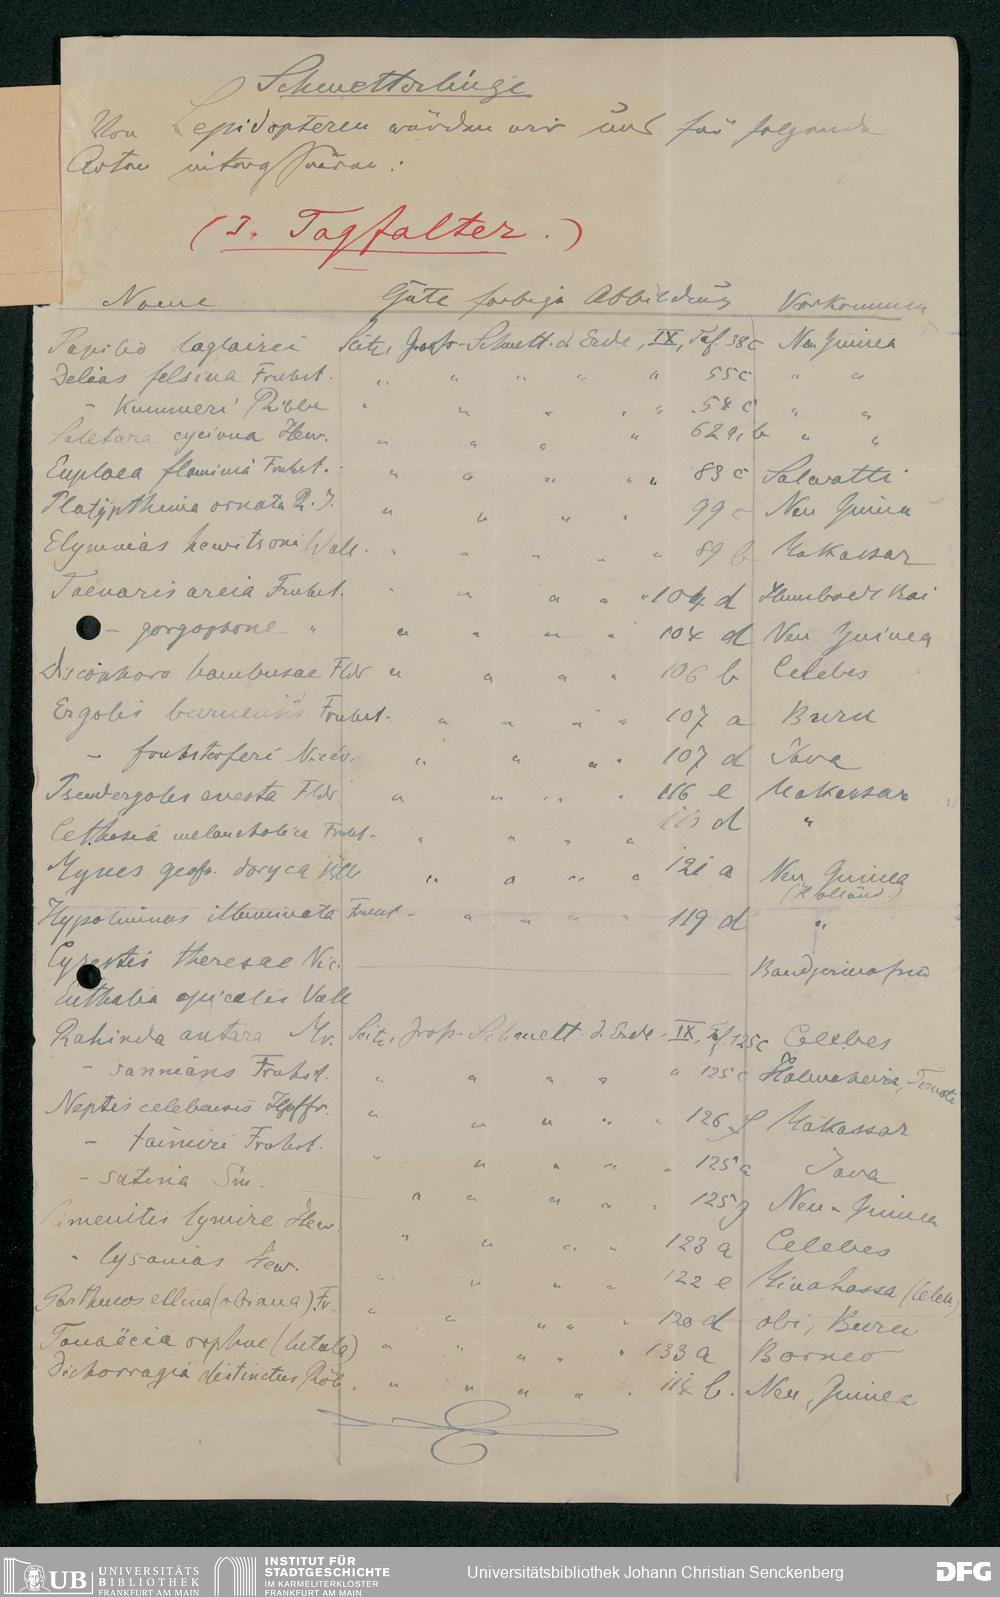 Schmetterlinge
Von Lepidopteren würden wir uns für folgende
Arten interessieren:
(I. Tagfalter.)
Name Gute farbige Abbildung Vorkommen
Papilio laglaizei Seitz, Gross-Schmett. d. Erde, IX, Taf. 38 c Neu Guinea
Delias felsina Fruhst. " " " " " 55 c " "
- Kummeri Ribbe " " " " " 54 c " "
Saletara cycinna Hew. " " " " 62 a, b " "
Euploea flaminia Fruhst. " " " " " 83 c Salavatti
Platypthima ornata R. J. " " " " 99 c Neu Guinea
Elymnias hewitsoni Wall. " " " " " 89 b Makassar
Taenaris areia Fruhst. " " " " " 104 d Humboldt Bai
- gorgophone " " " " " 104 d Neu Guinea
Discophora bambusae Fldr " " " " 106 b Celebes
Ergolis buruensis Fruhst. " " " " 107 a Buru
- fruhstorferi Nicév. " " " " 107 d Java
Pseudergolis avesta Fldr. " " " " 116 e Makassar
Cethosia melancholica Fruhst. " " " " d "
Mynes geoffr. doryca " " " " 121 a Neu Guinea
(Holländ.)
Hypolimnas illuminata Fruhst. " " " " 119 d "
Cyrestis theresae Nic. Bandjermasin
Euthalia apicalis Voll
Rahinda antara Mr. Seitz, Gross-Schmett. d. Erde - IX, Taf. 125 c Celebes
- sannians Fruhst. " " " " " 125 c Halmaheira, Ternate
Neptis celebensis Hpffr. " " " " 126 f Makassar
- Fruhst. " " " " " 125 a Java
- satina Sm. " " " " " 125 g Neu-Guinea
Limenitis lymire Hew. " " " " 123 a Celebes
" lysanias Hew. " " " " 122 e Minahassa (Celeb.)
Parthenos ellina (obiana) Fr. " " " " 120 d Obi, Buru
Tanaëcia orphne (lutala) " " " " " 133 a Borneo
Dichorragia distinctus Röb. " " " " " 114 b. Neu Guinea
UB UNIVERSITÄTS
BIBLIOTHEK
FRANKFURT AM MAIN
INSTITUT FÜR
STADTGESCHICHTE
IM KARMELITERKLOSTER
FRANKFURT AM MAIN
Universitätsbibliothek Johann Christian Senckenberg
DFG